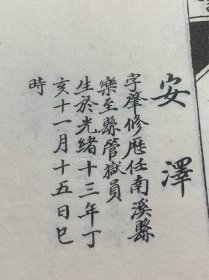 安澤
字肇修歷任南溪縣
樂至縣管獄員
生於光緒十三年丁
亥十一月十五日巳
時